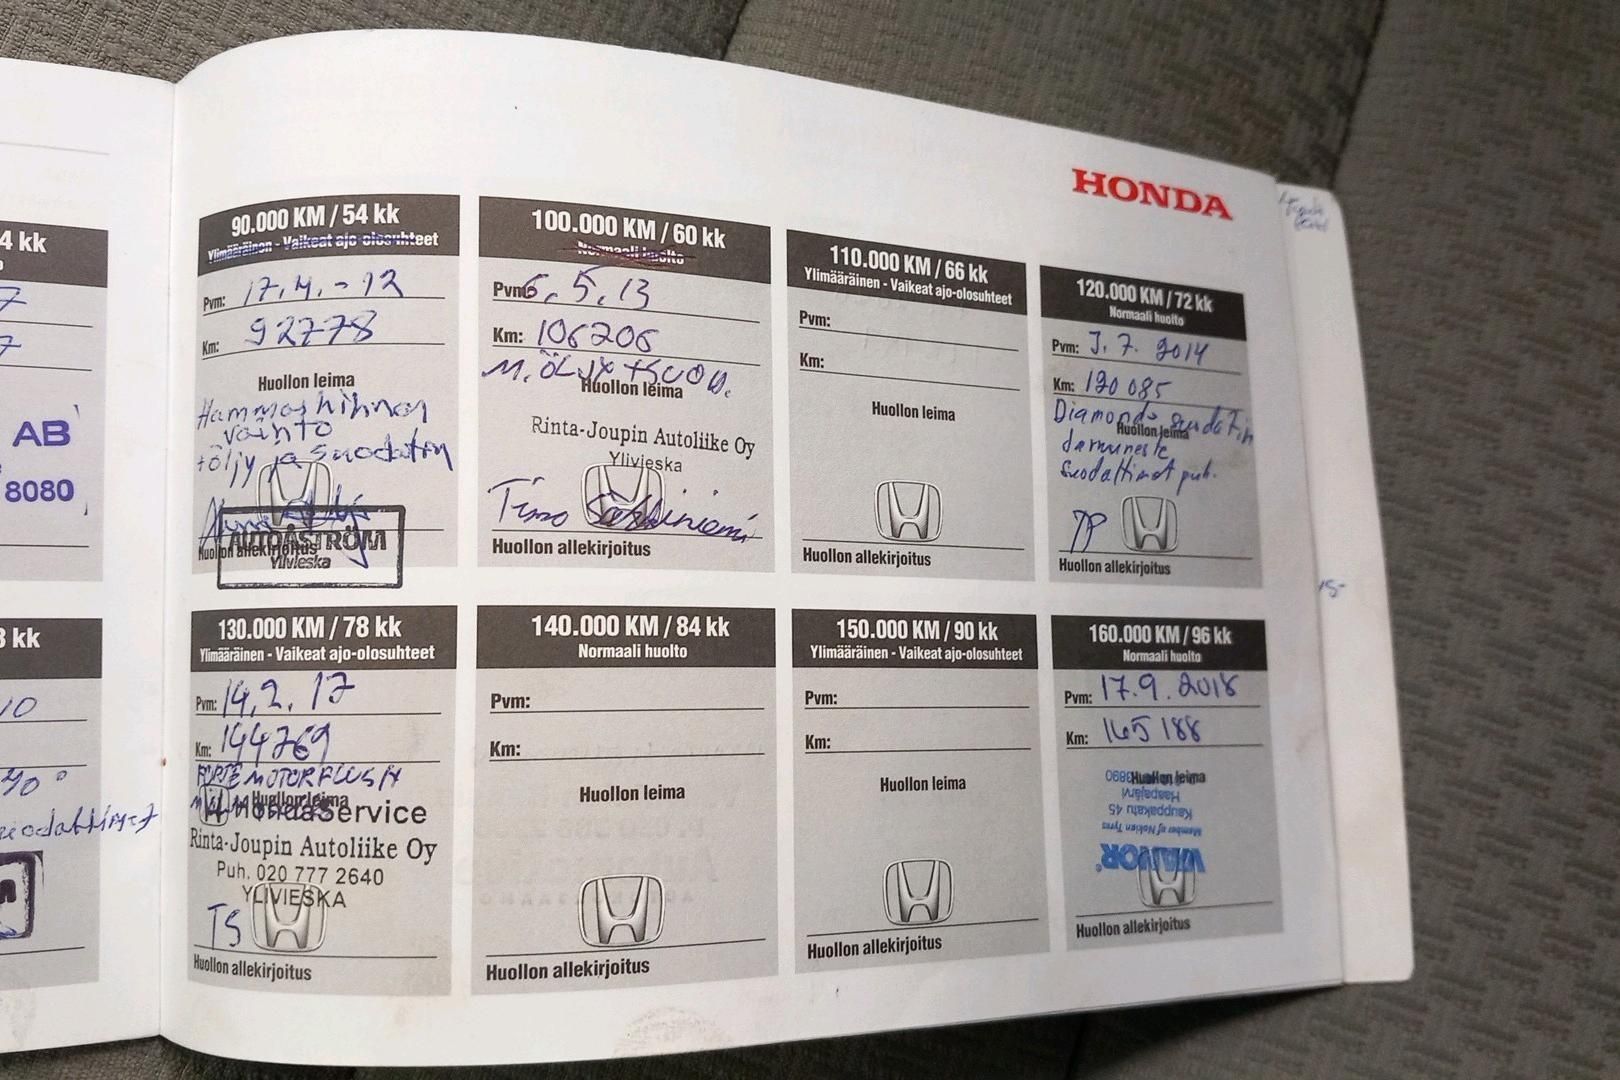 HONDA
4 kk
7
7
AB
8080
90.000 KM / 54 kk
Ylimääräinen - Vaikeat ajo-olosuhteet
Pvm: 17.4.-12
Km: 92778
Huollon leima
Hammashihnan
vaihto
+öljy ja suodatin
AUTOÅSTRÖM
Ylivieska
Huollon allekirjoitus
100.000 KM / 60 kk
Normaali huolto
Pvm: 6.5.13
Km: 106206
M.ÖLJY+SUOD.
Huollon leima
Rinta-Joupin Autoliike Oy
Ylivieska
Timo
Huollon allekirjoitus
110.000 KM / 66 kk
Ylimääräinen - Vaikeat ajo-olosuhteet
Pvm:
Km:
Huollon leima
Huollon allekirjoitus
120.000 KM / 72 kk
Normaali huolto
Pvm: 3.7. 2014
Km: 120 085
Huollon leima
suodattimet puh.
Huollon allekirjoitus
kk
10
130.000 KM / 78 kk
Ylimääräinen - Vaikeat ajo-olosuhteet
Pvm: 14.2.17
Km: 144769
FORTE MOTORFLUSH
Huollon leima
HondaService
Rinta-Joupin Autoliike Oy
Puh. 020 777 2640
YLIVIESKA
TS
Huollon allekirjoitus
140.000 KM / 84 kk
Normaali huolto
Pvm:
Km:
Huollon leima
Huollon allekirjoitus
150.000 KM / 90 kk
Ylimääräinen - Vaikeat ajo-olosuhteet
Pvm:
Km:
Huollon leima
Huollon allekirjoitus
160.000 KM / 96 kk
Normaali huolto
Pvm: 17.9.2018
Km: 165 188
Huollon leima
Haapajärvi
Kauppakatu 45
Member of Nokian Tyres
VIANOR
Huollon allekirjoitus